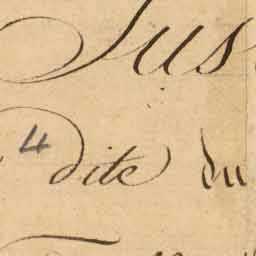 Jus
4 dite du